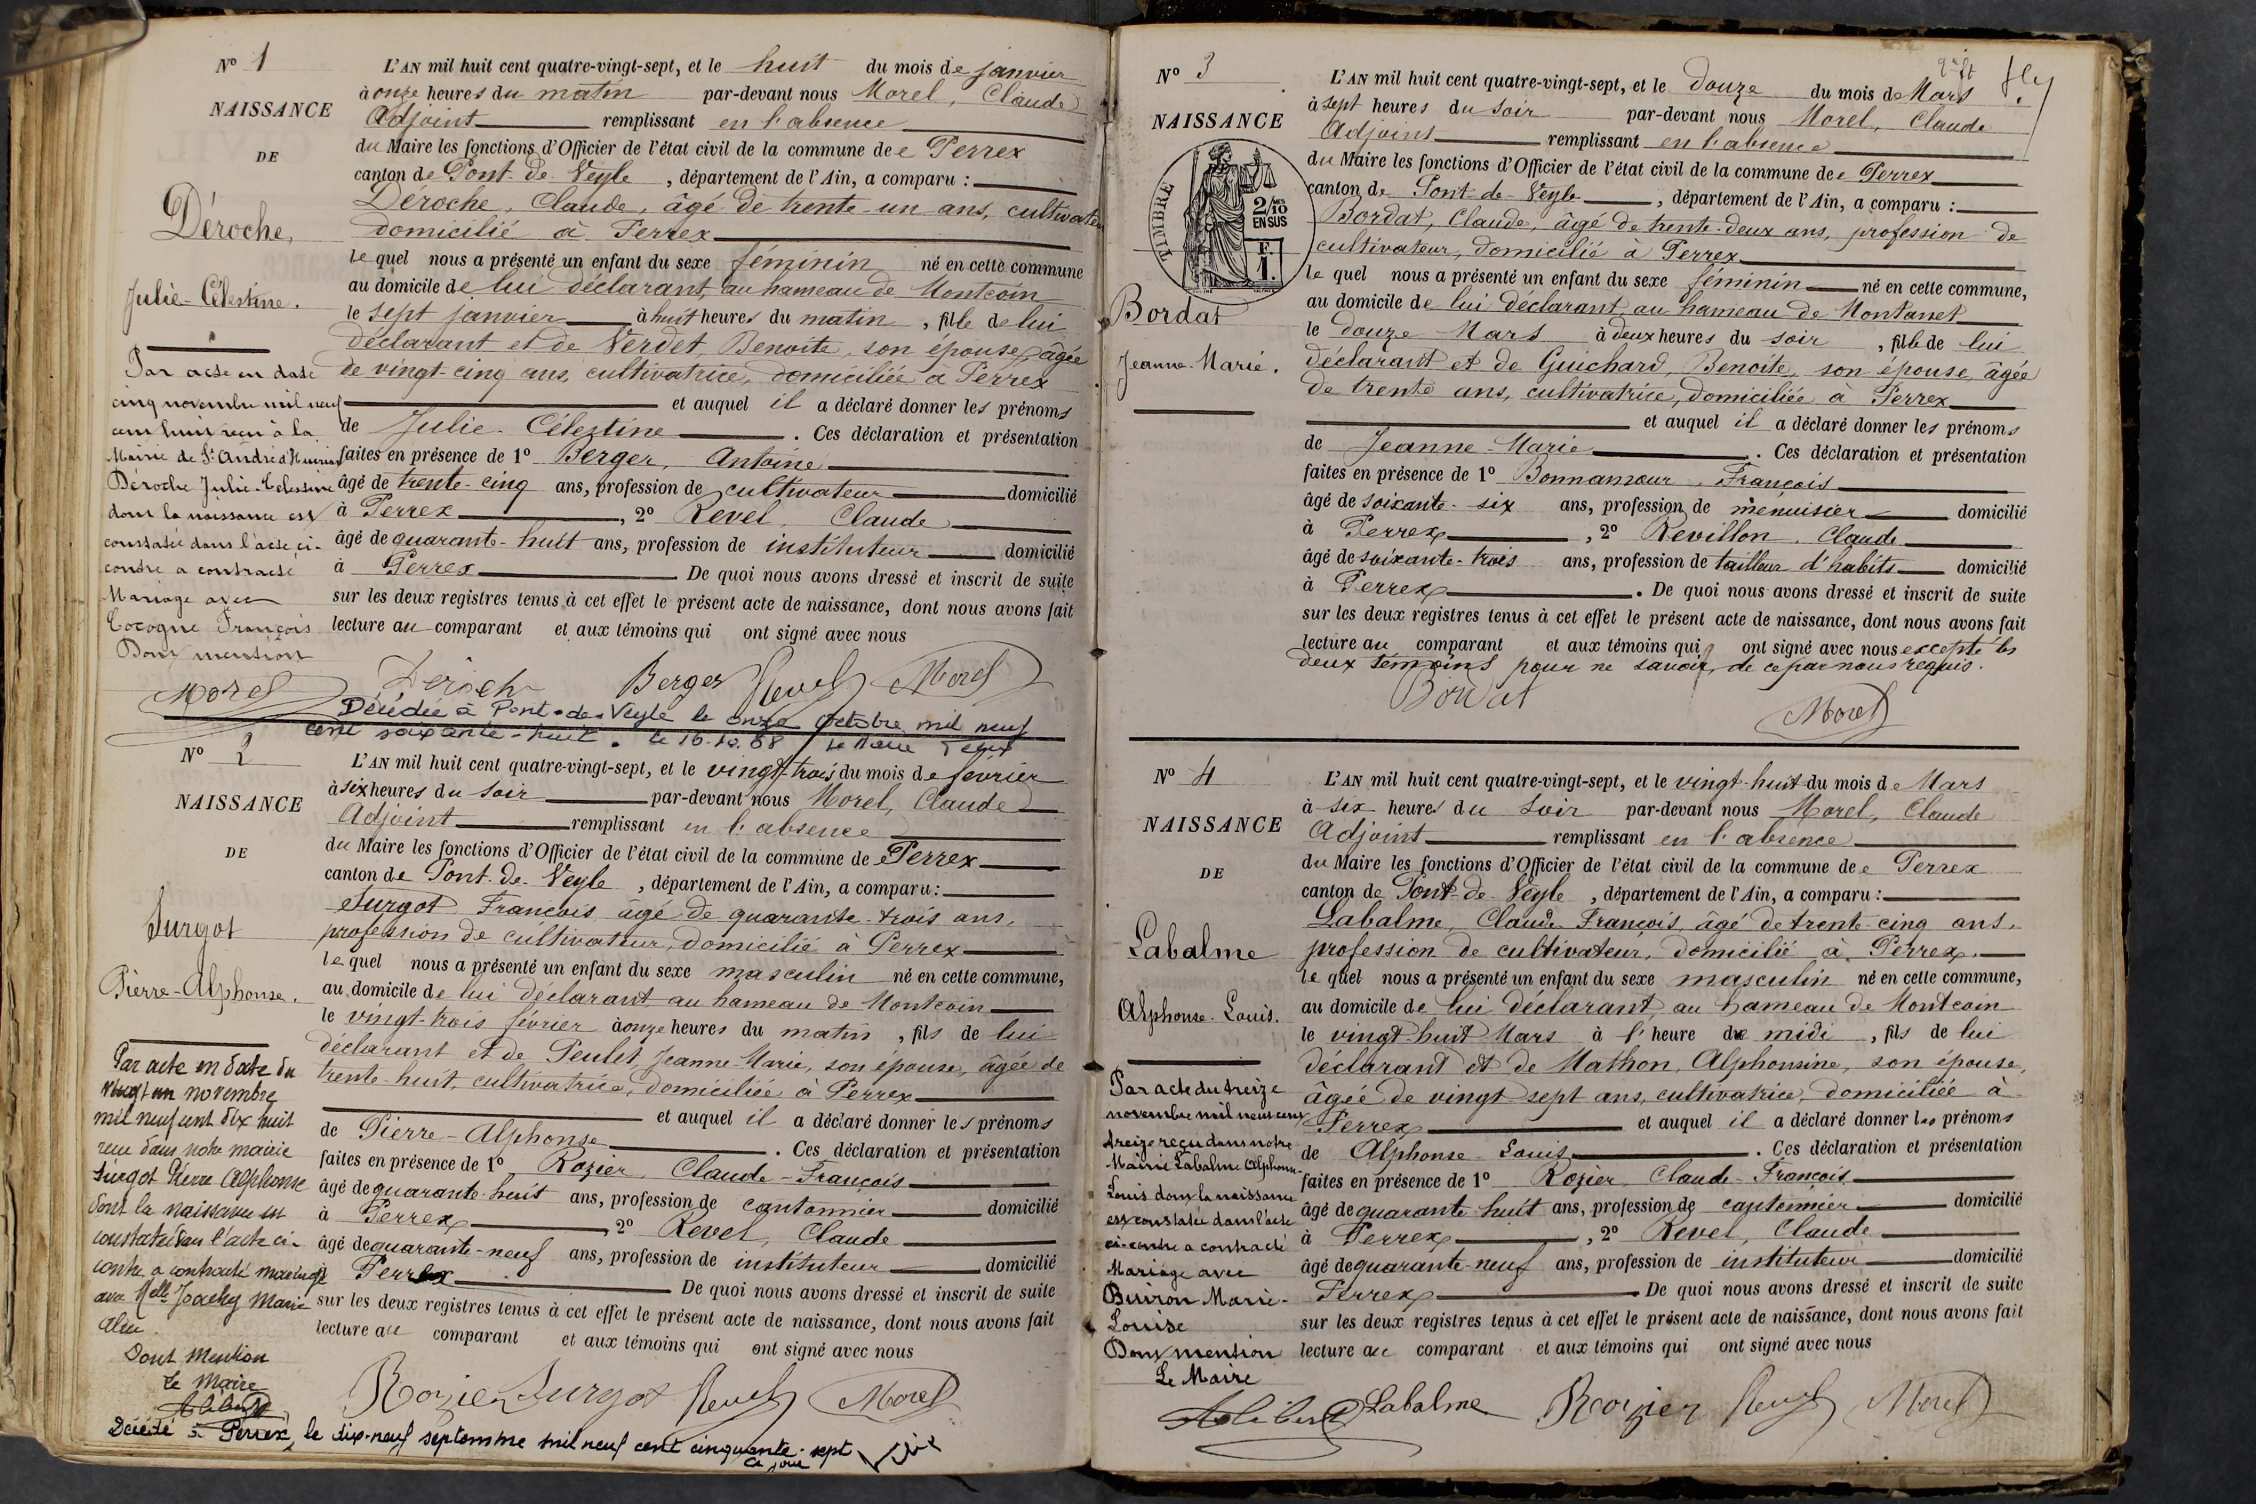 N° 1
NAISSANCE
DE
Déroche,
Julie-Célestine.
Par acte en date
cinq novembre mil neuf
cent huit reçu à la
Mairie de St André d'Huiriat
Déroche Julie-Célestine
dont la naissance est
constatée dans l'acte ci-
contre a contracté
Mariage avec
Cocogne François
Dont mention
Morel
L'AN mil huit cent quatre-vingt-sept, et le huit du mois de janvier
à onze heures du matin par-devant nous Morel, Claude
Adjoint remplissant en l'absence
du Maire les fonctions d'Officier de l'état civil de la commune de Perrex
canton de Pont-de-Veyle, département de l'Ain, a comparu :
Déroche, Claude, âgé de trente-un ans, cultivateur
domicilié à Perrex
le quel nous a présenté un enfant du sexe féminin né en cette commune
au domicile de lui déclarant, au hameau de Montcoin
le sept janvier à huit heures du matin, fille de lui
déclarant et de Verdet, Benoite, son épouse, âgée
de vingt-cinq ans, cultivatrice, domiciliée à Perrex
et auquel il a déclaré donner les prénoms
de Julie-Célestine. Ces déclaration et présentation
faites en présence de 1° Berger, Antoine
âgé de trente-cinq ans, profession de cultivateur domicilié
à Perrex, 2° Revel, Claude
âgé de quarante-huit ans, profession de instituteur domicilié
à Perrex De quoi nous avons dressé et inscrit de suite
sur les deux registres tenus à cet effet le présent acte de naissance, dont nous avons fait
lecture au comparant et aux témoins qui ont signé avec nous
Déroche Berger Revel Morel
Décédée à Pont-de-Veyle le onze octobre mil neuf
cent soixante-huit. le 16.10.68 Le Maire
N° 2
NAISSANCE
DE
Surgot
Pierre-Alphonse.
Par acte en date du
vingt un novembre
mil neuf cent dix huit
reçu dans notre mairie
Surgot Pierre Alphonse
dont la naissance est
constatée dans l'acte ci-
contre a contracté mariage
avec Melle Marie
Dont Mention
Le Maire
L'AN mil huit cent quatre-vingt-sept, et le vingt-trois du mois de février
à six heures du soir par-devant nous Morel, Claude
Adjoint remplissant en l'absence
du Maire les fonctions d'Officier de l'état civil de la commune de Perrex
canton de Pont-de-Veyle, département de l'Ain, a comparu :
Surgot François âgé de quarante-trois ans,
profession de cultivateur, domicilié à Perrex
le quel nous a présenté un enfant du sexe masculin né en cette commune,
au domicile de lui déclarant au hameau de Montcoin
le vingt-trois février à onze heures du matin, fils de lui
déclarant et de Peulet, Jeanne-Marie, son épouse, âgée de
trente-huit, cultivatrice, domiciliée à Perrex
et auquel il a déclaré donner les prénoms
de Pierre-Alphonse. Ces déclaration et présentation
faites en présence de 1° Rozier, Claude-François
âgé de quarante-huit ans, profession de cantonnier domicilié
à Perrex 2° Revel, Claude
âgé de quarante-neuf ans, profession de instituteur domicilié
à Perrex De quoi nous avons dressé et inscrit de suite
sur les deux registres tenus à cet effet le présent acte de naissance, dont nous avons fait
lecture au comparant et aux témoins qui ont signé avec nous
Rozier Surgot Revel Morel
Décédé à Perrex, le dix-neuf septembre mil neuf cent cinquante-sept
N° 3
NAISSANCE
TIMBRE
2/10 EN SUS
F. 1.
Bordat
Jeanne-Marie.
L'AN mil huit cent quatre-vingt-sept, et le douze du mois de Mars
à sept heures du soir par-devant nous Morel, Claude
Adjoint remplissant en l'absence
du Maire les fonctions d'Officier de l'état civil de la commune de Perrex
canton de Pont-de-Veyle, département de l'Ain, a comparu :
Bordat, Claude, âgé de trente-deux ans, profession de
cultivateur, domicilié à Perrex
le quel nous a présenté un enfant du sexe féminin né en cette commune,
au domicile de lui déclarant au hameau de Montanet
le douze Mars à deux heures du soir, fille de lui
déclarant et de Guichard, Benoite, son épouse, âgée
de trente ans, cultivatrice, domiciliée à Perrex
et auquel il a déclaré donner les prénoms
de Jeanne-Marie. Ces déclaration et présentation
faites en présence de 1° Bonnamour, François
âgé de soixante-six ans, profession de menuisier domicilié
à Perrex, 2° Revillon, Claude
âgé de soixante-trois ans, profession de tailleur d'habits domicilié
à Perrex. De quoi nous avons dressé et inscrit de suite
sur les deux registres tenus à cet effet le présent acte de naissance, dont nous avons fait
lecture au comparant et aux témoins qui ont signé avec nous excepté les
deux témoins pour ne savoir, de ce par nous requis.
Bordat Morel
N° 4
NAISSANCE
DE
Labalme
Alphonse-Louis.
Par acte du treize
novembre mil neuf cent
treize reçu dans notre
Mairie Labalme Alphonse-
Louis dont la naissance
est constatée dans l'acte
ci-contre a contracté
Mariage avec
Buiron Marie-
Louise
Dont mention
Le Maire
L'AN mil huit cent quatre-vingt-sept, et le vingt-huit du mois de Mars
à six heures du soir par-devant nous Morel, Claude
Adjoint remplissant en l'absence
du Maire les fonctions d'Officier de l'état civil de la commune de Perrex
canton de Pont-de-Veyle, département de l'Ain, a comparu :
Labalme, Claude François, âgé de trente-cinq ans,
profession de cultivateur, domicilié à Perrex.
le quel nous a présenté un enfant du sexe masculin né en cette commune,
au domicile de lui déclarant, au hameau de Montcoin
le vingt-huit Mars à l'heure de midi, fils de lui
déclarant et de Mathon, Alphonsine, son épouse,
âgée de vingt sept ans, cultivatrice, domiciliée à
Perrex et auquel il a déclaré donner les prénoms
de Alphonse-Louis. Ces déclaration et présentation
faites en présence de 1° Rozier, Claude-François
âgé de quarante huit ans, profession de cantonnier domicilié
à Perrex, 2° Revel, Claude
âgé de quarante-neuf ans, profession de instituteur domicilié
Perrex. De quoi nous avons dressé et inscrit de suite
sur les deux registres tenus à cet effet le présent acte de naissance, dont nous avons fait
lecture au comparant et aux témoins qui ont signé avec nous
Labalme Rozier Revel Morel